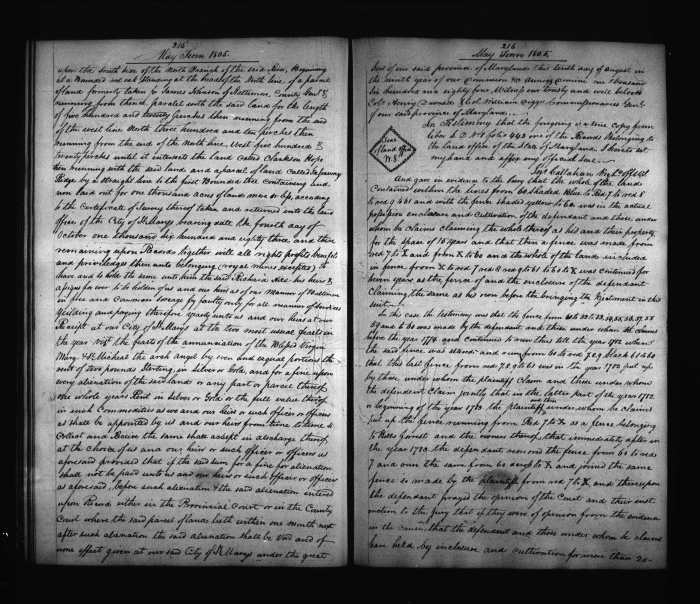 215
May Term 1805.
upon the South side of the North Branch of the said River, Beginning
at a Bounded red oak standing at the head of the North line of a parcel
of land formerly taken for James Johnson of Baltimore County Gent. &
running from thence parallel with the said land for the length
of five hundred and twenty perches then running from the end
of the west line North three hundred and ten perches then
running from the end of the North line, West five hundred &
Twenty perches until it intersects the land called Clarkson Hope
then running with the said land and a parcel of land called
Ridge by a Straight line to the first Bounded tree Containing and
now laid out for one thousand acres of land more or less, according
to the Certificate of Survey thereof taken and returned into the land
office of the City of St Marys bearing date the fourth day of
October one thousand six hundred and eighty three and there
remaining upon Record together with all right profits benefits
and priviledges then unto belonging (royal mines excepted) To
have and to hold the same unto him the said Richard his heirs &
assigns for ever to be holden of us and our heirs as of our Manner of Baltimore
in free and Common Soccage by fealty only for all manner of Services
yielding and paying therefore yearly unto us and our heirs at our
Receipt at our City of St Marys at the two most usual feasts in
the year Vizt the feast of the annunciation of the Blessed Virgin
Mary & St Michael the arch angel by even and equal portions the
rent of two pounds Sterling, in Silver or Gold, and for a fine upon
every alienation of the said lands or any part or parcel thereof
one whole years Rent in Silver or Gold or the full value thereof
in such Commodities as we and our heirs or such officer or officers
as shall be appointed by us and our heirs from time to time to
Collect and Receive the same shall accept in discharge thereof,
at the choice of us and our heirs or such officer or officers as
aforesaid provided that if the said sum for a fine for alienation
shall not be paid unto us and our heirs or such officer or officers
as aforesaid, before such alienation & the said alienation entered
upon Record either in the Provincial Court or in the County
Court where the said parcel of land lieth within one month next
after such alienation the said alienation shall be Void and of
none effect given at our said City of St Marys under the great
216
May Term 1805.
Seal of our said province of Maryland this tenth day of August in
the ninth year of our dominion &c Annoq Domini one thousand
Six hundred and eighty four Witness our trusty and well beloved
Colo Henry Darnall & Col William Digges Commissionaries Genl
of our said province of Maryland
In Testimony that the foregoing is a true Copy from
Liber S.D. No A folio 443 one of the Records Belonging to
the land office of the State of Maryland I hereto set
my hand and affix my official Seal
Seal
of land office
W.S.
Jno Callahan
And gave in evidence to the Jury that the whole of the lands
Contained within the lines from 60 shaded blue to Red 7 to red 8
to red 9 & 61 and with the fence shaded yellow to 60 was in the actual
possession enclosure and Cultivation of the defendant and those under
whom he claims claiming the whole thereof as his and their property
for the space of 10 years and that then a fence was made from
red 7 to X and from X to 60 and the whole of the lands included
in fence from X to red 7 red 8 red 9 to 61 to 60 to X was continued for
years as the fence of and the enclosure of the defendant
claiming the same as his own before the bringing the Ejectment in this
suit
In this case the testimony was that the fence from 60 to
59 and to 60 was made by the defendant and those under whom he claims
before the year 1774 and continued to run thus till the year 1782 when
the said fence was altered and run from 60 to red 7 2 9 black 61 & 60
that this last fence from red 7 8 9 to 61 was in the year 1782 put up
by those under whom the plaintiff Claim and those under whom
the defendant Claim Jointly that in the latter part of the year 1782
or beginning of the year 1783 the plaintiff and those under whom he claims
put up the fence running from Red 7 to X as a fence belonging
to Hales Forrest and the owners thereof, that immediately after in
the year 1783 the defendant removed the fence from 60 to red
7 and run the same from 60 to X and joined the same
fence so made by the plaintiff from red 7 to X, and thereupon
the defendant prayed the opinion of the Court and their instruc-
mation to the Jury that if they were of opinion from the evidence
in the cause, that the defendant and those under whom he claims
have held by enclosure and cultivation for more than 20